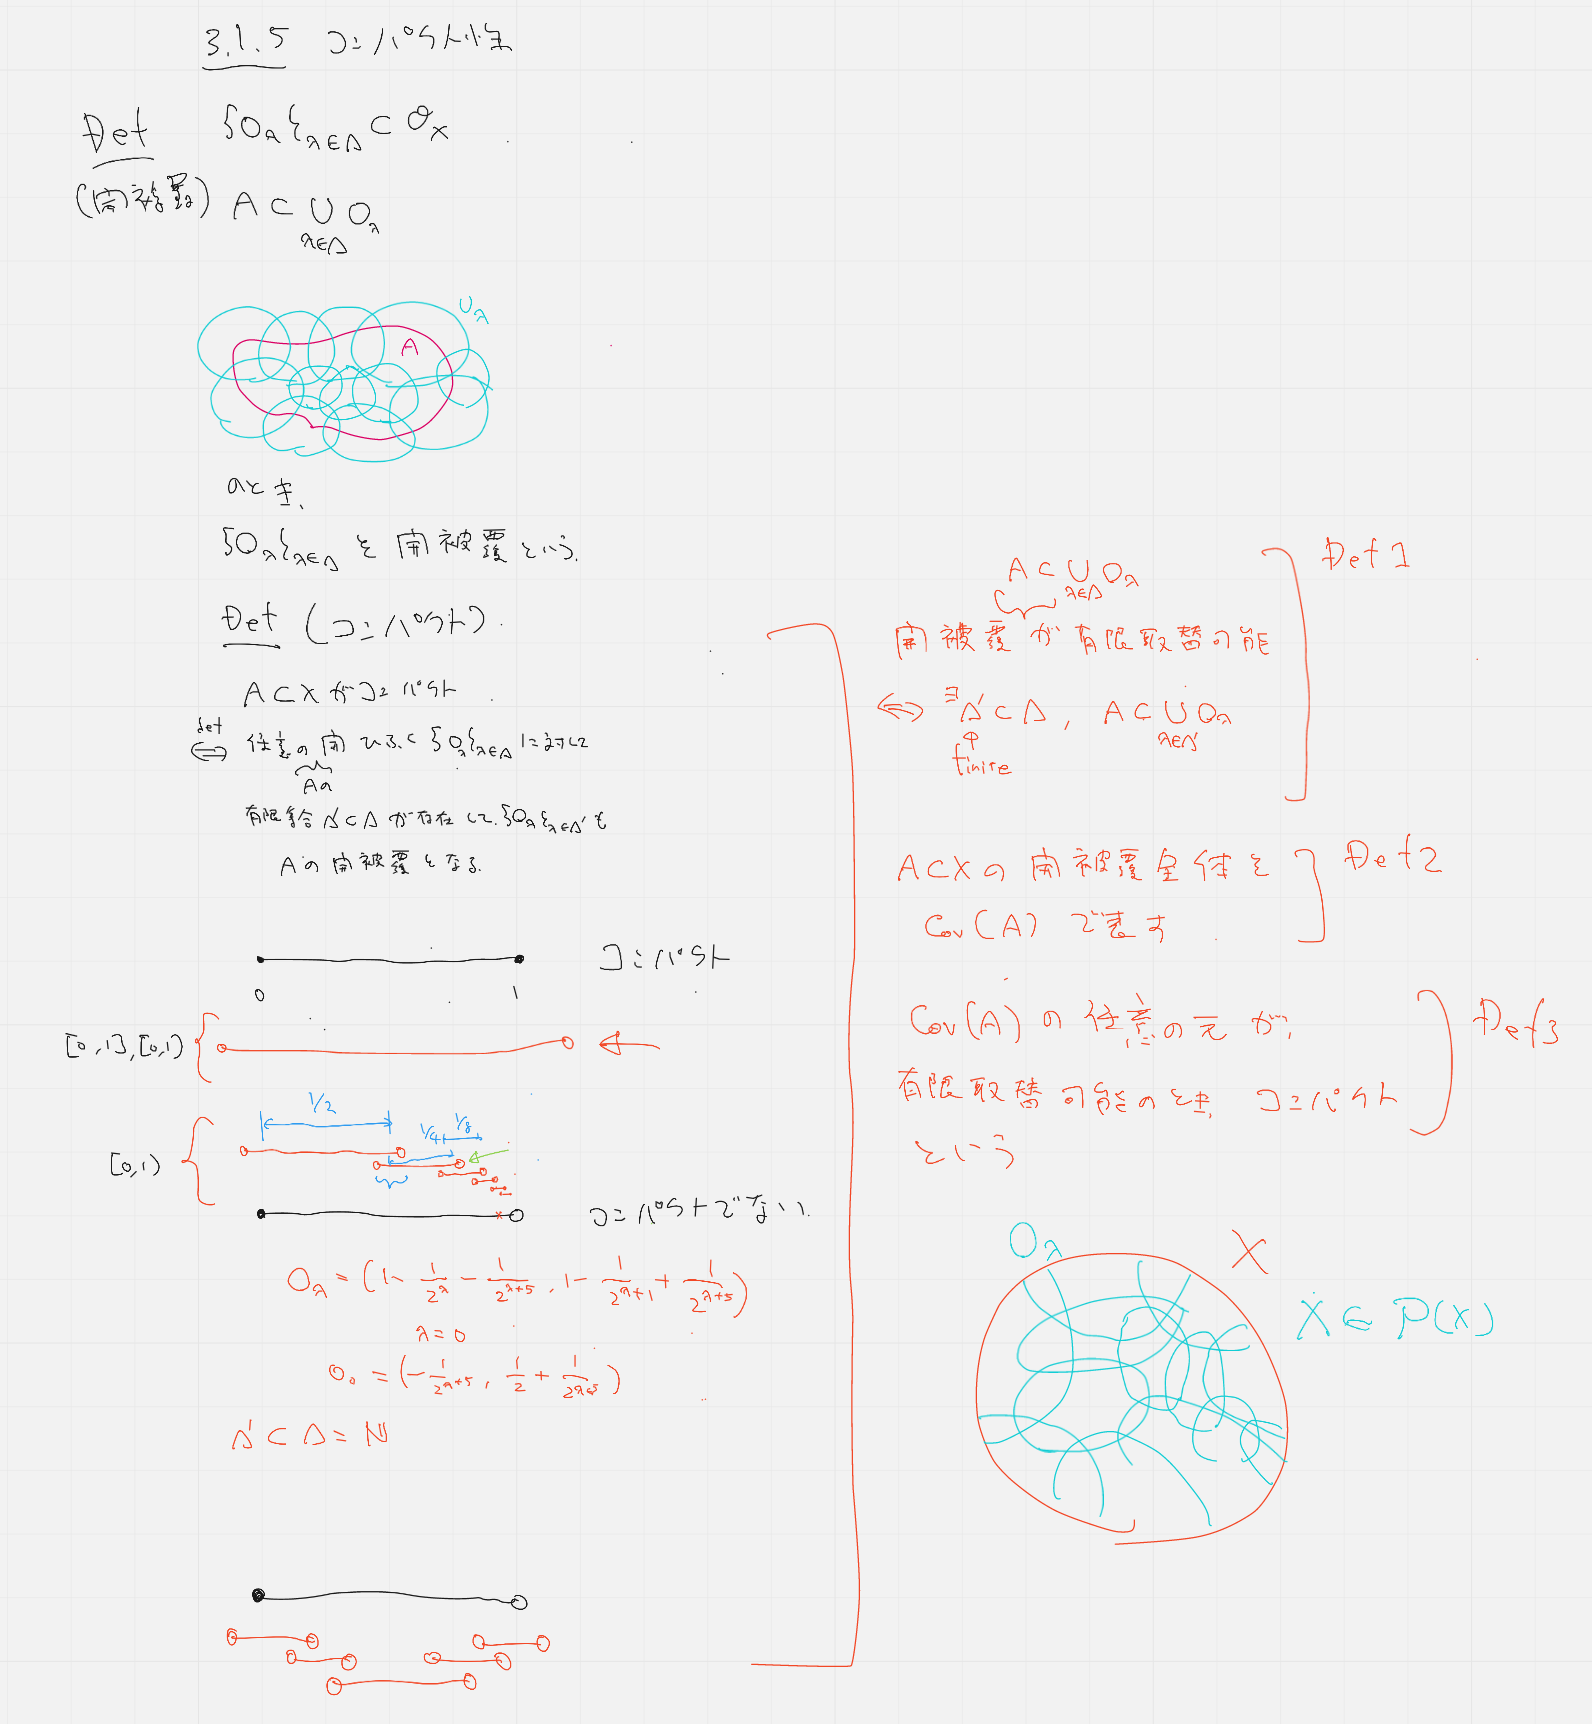 3.1.5 コンパクト性
Def {Oλ}λ∈Λ ⊂ 𝒪X
(開被覆) A ⊂ ∪λ∈Λ Oλ
Uλ
A
のとき、
{Oλ}λ∈Λ を 開被覆という.
Def (コンパクト).
A⊂Xがコンパクト
def
⇔ 任意の開ひふく{Oλ}λ∈Λに対して
Aの
有限集合Λ'⊂Λが存在して、{Oλ}λ∈Λ'も
Aの開被覆となる.
コンパクト
0 1
[0,1],[0,1)
1/2
1/4 1/8
[0,1)
コンパクトでない.
Oλ = (1 - 1/2^λ - 1/2^(λ+5), 1 - 1/2^(λ+1) + 1/2^(λ+5))
λ=0
O₀ = (-1/2^(λ+5), 1/2 + 1/2^(λ+5))
Λ' ⊂ Λ = ℕ
A ⊂ ∪λ∈Λ Oλ
Def 1
開被覆が有限取替可能
⇔ ∃Λ'⊂Λ, A⊂∪λ∈Λ' Oλ
finite
A⊂Xの開被覆全体を
Def 2
Cov(A)で表す
Cov(A)の任意の元が,
Def 3
有限取替可能のとき, コンパクト
という
Oλ
X
X ∈ P(X)